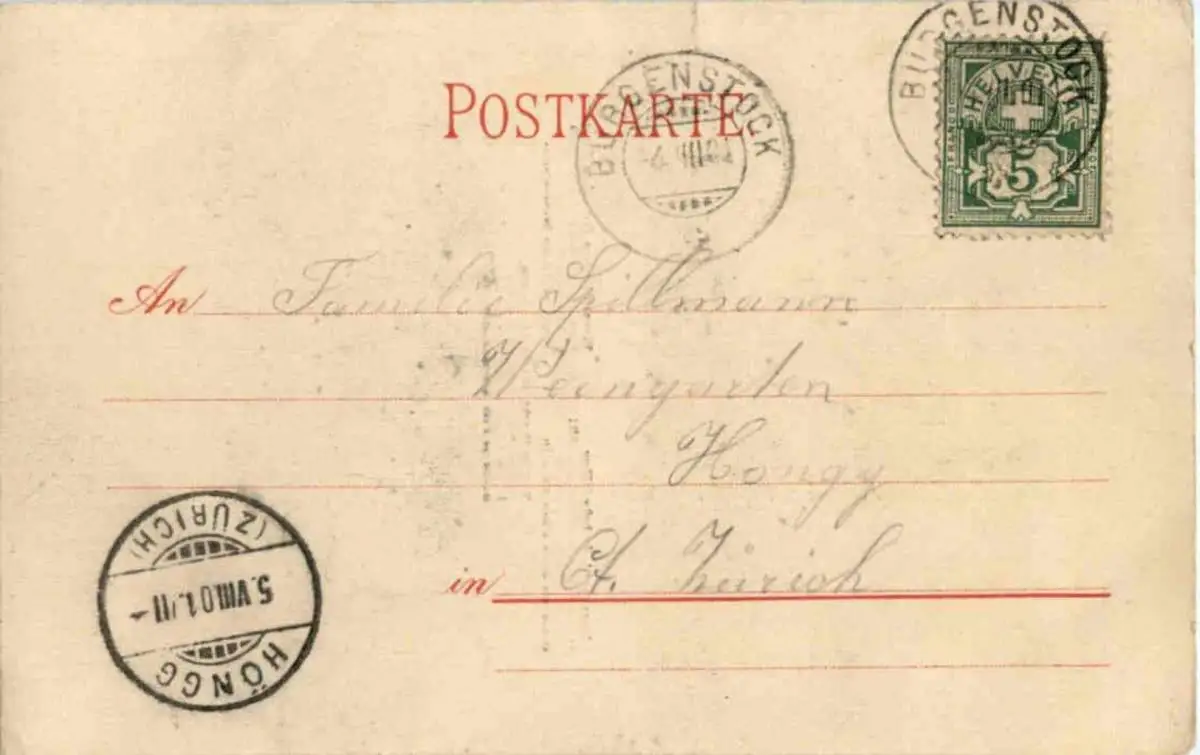 BÜRGENSTOCK
HELVETIA
5
POSTKARTE
BÜRGENSTOCK
-4.VIII.01
An Familie Spillmann
Weingarten
Höngg
in Ct. Zürich
(ZÜRICH)
5.VIII.01.
HÖNGG